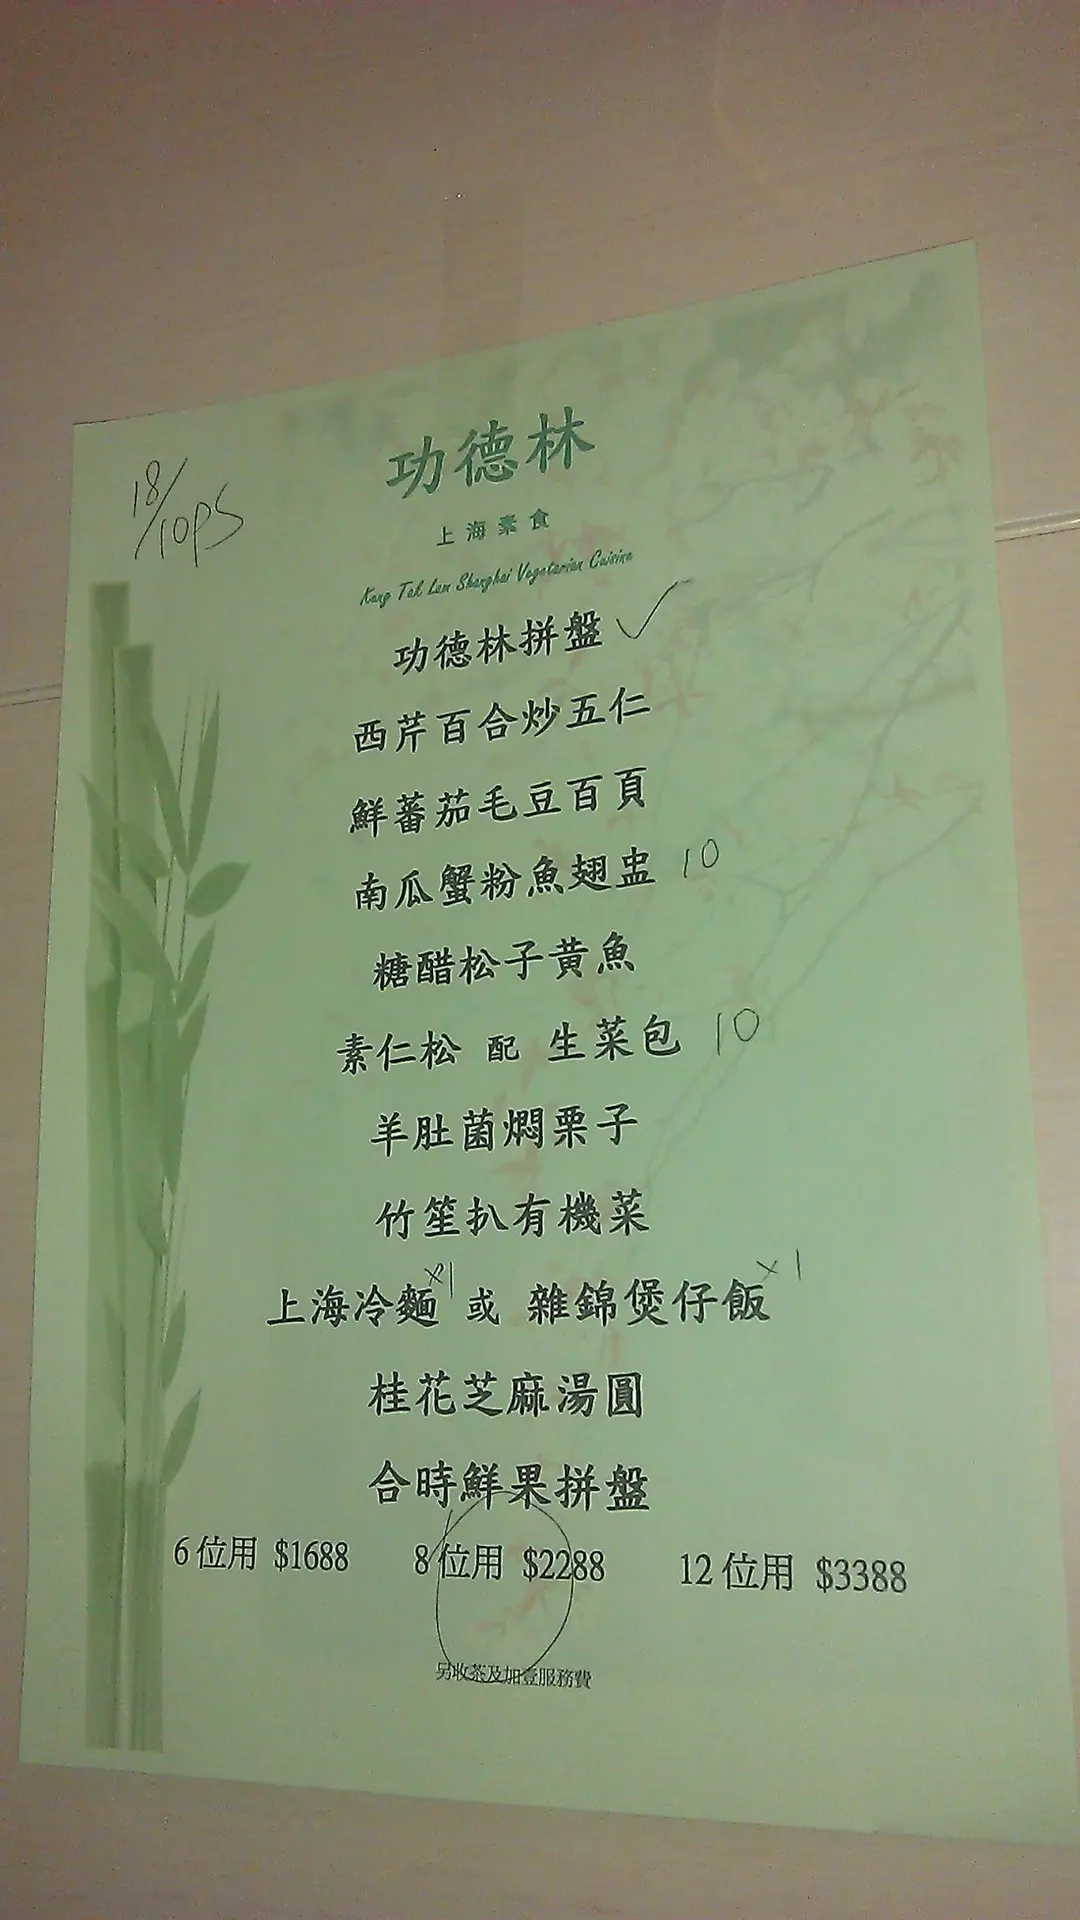 18/10PS
功德林
上海素食
Kung Tak Lam Shanghai Vegetarian Cuisine
功德林拼盤 ✓
西芹百合炒五仁
鮮蕃茄毛豆百頁
南瓜蟹粉魚翅盅 10
糖醋松子黃魚
素仁松 配 生菜包 10
羊肚菌燜栗子
竹笙扒有機菜
上海冷麵 x1 或 雜錦煲仔飯 x1
桂花芝麻湯圓
合時鮮果拼盤
6位用 $1688 8位用 $2288 12位用 $3388
另收茶及加壹服務費